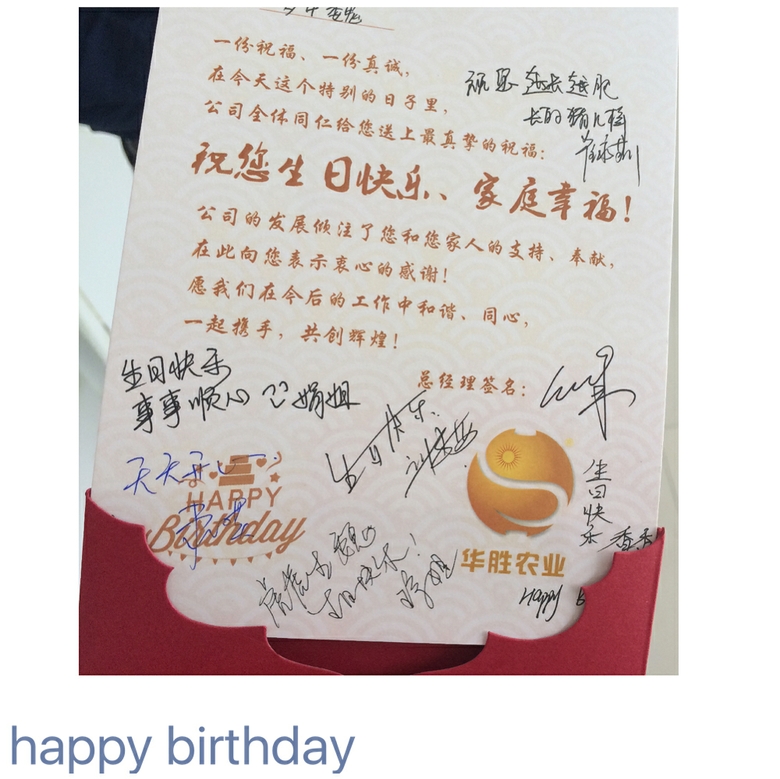 一份祝福、一份真诚，
在今天这个特别的日子里，
公司全体同仁给您送上最真挚的祝福：
祝您生日快乐、家庭幸福！
公司的发展倾注了您和您家人的支持、奉献，
在此向您表示衷心的感谢！
愿我们在今后的工作中和谐、同心，
一起携手，共创辉煌！
越长越肥
生日快乐
事事顺心 娟姐
总经理签名：
生日快乐
天天开心
HAPPY
Birthday
生日快乐
华胜农业
Happy b
happy birthday